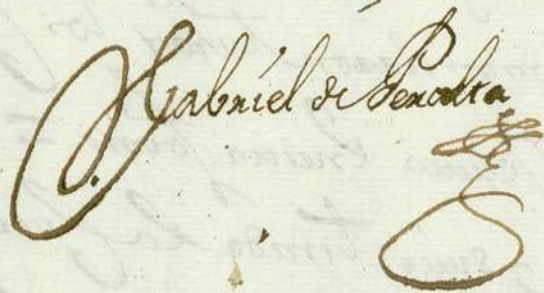 Gabriel de Peralta